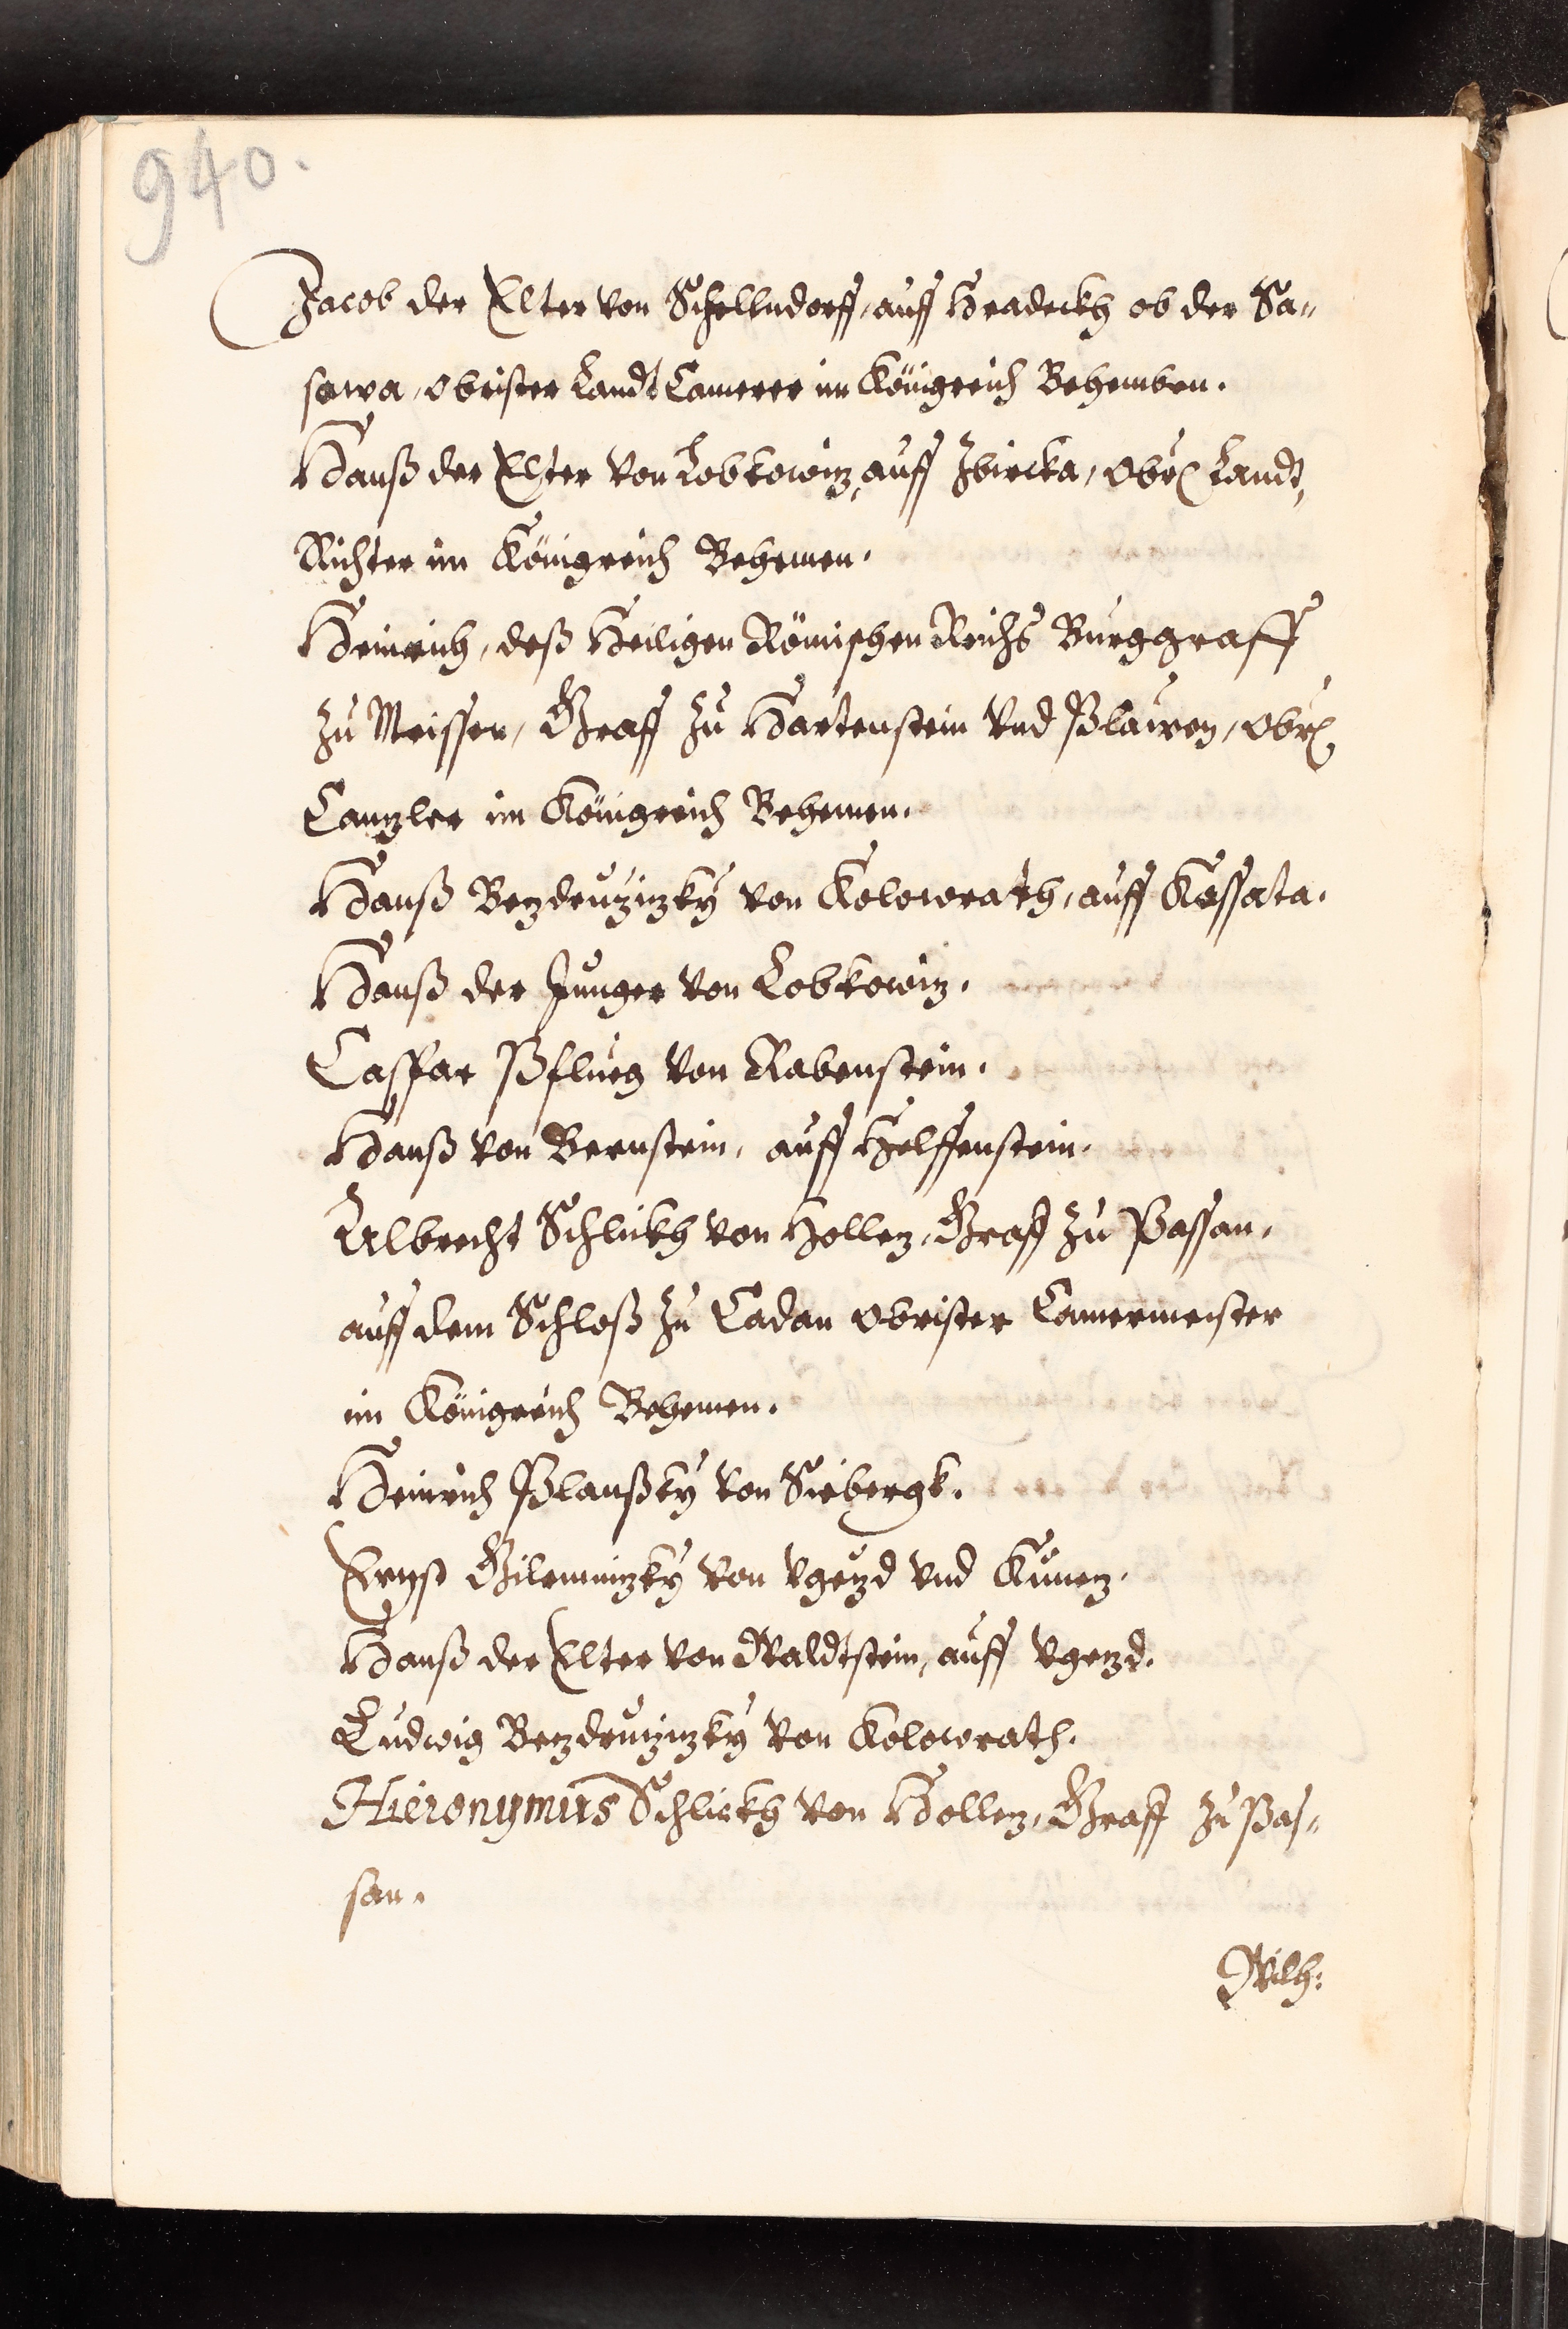 940.
Jacob der Elter von Schellndorff, auff Hradeckh ob der Sa-
sawa, obrister Landt Camerer im Königreich Behemben.
Hanß der Elter von Lobkowiz, auff Zbircka, Obr. Landt,
Richter im Königreich Behemen.
Heinrich, deß Heiligen Römischen Reichs Burggraff
zu Meissen, Graff zu Hartenstein vnd Plawen, Obr.
Canzler im Königreich Behemen.
Hanß Bezdruzizky von Kolowrath, auff Kossata.
Hanß der Junger von Lobkowiz.
Caspar Pflueg von Rabenstein.
Hanß von Bernstein, auff Helffenstein.
Albrecht Schlickh von Hollez, Graff zu Passan,
auff dem Schloß zu Cadan obrister Camermeister
im Königreich Behemen.
Heinrich Plaußky von Siebergk.
Ernst Gilemnizky von Vgezd vnd Kunez.
Hanß der Elter von Waldtstein, auff Vgezd.
Ludwig Bezdruzizky von Kolowrath.
Hieronymus Schlickh von Hollez, Graff zu Pas-
san.
Wilh: